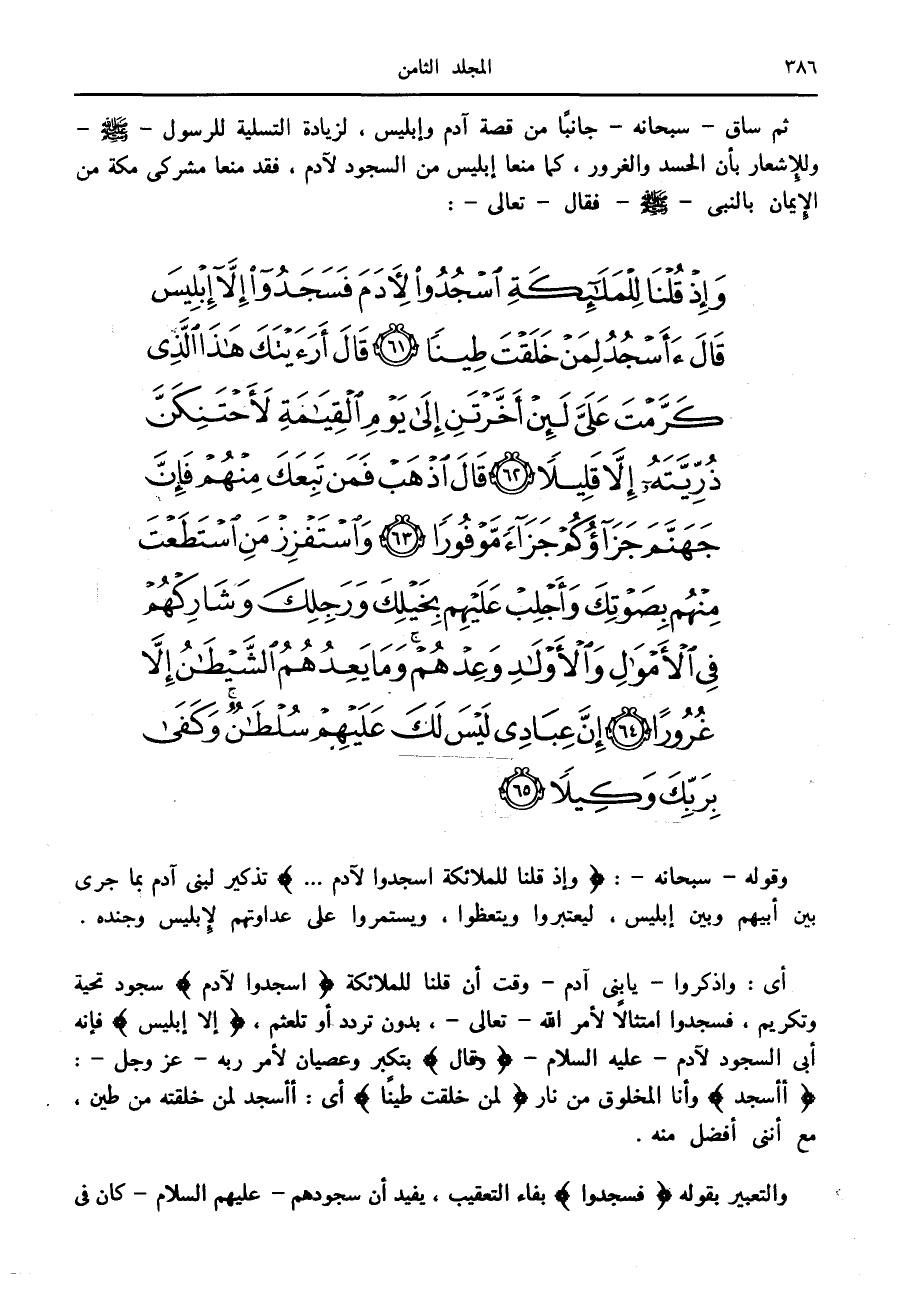 ٣٨٦ المجلد الثامن
ثم ساق – سبحانه – جانبًا من قصة آدم وإبليس ، لزيادة التسلية للرسول – ﷺ –
وللإشعار بأن الحسد والغرور ، كما منعا إبليس من السجود لآدم ، فقد منعا مشركى مكة من
الإيمان بالنبى – ﷺ – فقال – تعالى – :
وَإِذۡ قُلۡنَا لِلۡمَلَٰٓئِكَةِ ٱسۡجُدُواْ لِأٓدَمَ فَسَجَدُوٓاْ إِلَّآ إِبۡلِيسَ
قَالَ ءَأَسۡجُدُ لِمَنۡ خَلَقۡتَ طِينٗا ٦١ قَالَ أَرَءَيۡتَكَ هَٰذَا ٱلَّذِي
كَرَّمۡتَ عَلَيَّ لَئِنۡ أَخَّرۡتَنِ إِلَىٰ يَوۡمِ ٱلۡقِيَٰمَةِ لَأَحۡتَنِكَنَّ
ذُرِّيَّتَهُۥٓ إِلَّا قَلِيلٗا ٦٢ قَالَ ٱذۡهَبۡ فَمَن تَبِعَكَ مِنۡهُمۡ فَإِنَّ
جَهَنَّمَ جَزَآؤُكُمۡ جَزَآءٗ مَّوۡفُورٗا ٦٣ وَٱسۡتَفۡزِزۡ مَنِ ٱسۡتَطَعۡتَ
مِنۡهُم بِصَوۡتِكَ وَأَجۡلِبۡ عَلَيۡهِم بِخَيۡلِكَ وَرَجِلِكَ وَشَارِكۡهُمۡ
فِي ٱلۡأَمۡوَٰلِ وَٱلۡأَوۡلَٰدِ وَعِدۡهُمۡۚ وَمَا يَعِدُهُمُ ٱلشَّيۡطَٰنُ إِلَّا
غُرُورًا ٦٤ إِنَّ عِبَادِي لَيۡسَ لَكَ عَلَيۡهِمۡ سُلۡطَٰنٞۚ وَكَفَىٰ
بِرَبِّكَ وَكِيلٗا ٦٥
وقوله – سبحانه – : ﴿ وإذ قلنا للملائكة اسجدوا لآدم ... ﴾ تذكير لبنى آدم بما جرى
بين أبيهم وبين إبليس ، ليعتبروا ويتعظوا ، ويستمروا على عداوتهم لإبليس وجنده .
أى : واذكروا – يابنى آدم – وقت أن قلنا للملائكة ﴿ اسجدوا لآدم ﴾ سجود تحية
وتكريم ، فسجدوا امتثالًا لأمر الله – تعالى – ، بدون تردد أو تلعثم ، ﴿ إلا إبليس ﴾ فإنه
أبى السجود لآدم – عليه السلام – ﴿ وقال ﴾ بتكبر وعصيان لأمر ربه – عز وجل – :
﴿ أأسجد ﴾ وأنا المخلوق من نار ﴿ لمن خلقت طينًا ﴾ أى : أأسجد لمن خلقته من طين ،
مع أننى أفضل منه .
والتعبير بقوله ﴿ فسجدوا ﴾ بفاء التعقيب ، يفيد أن سجودهم – عليهم السلام – كان فى